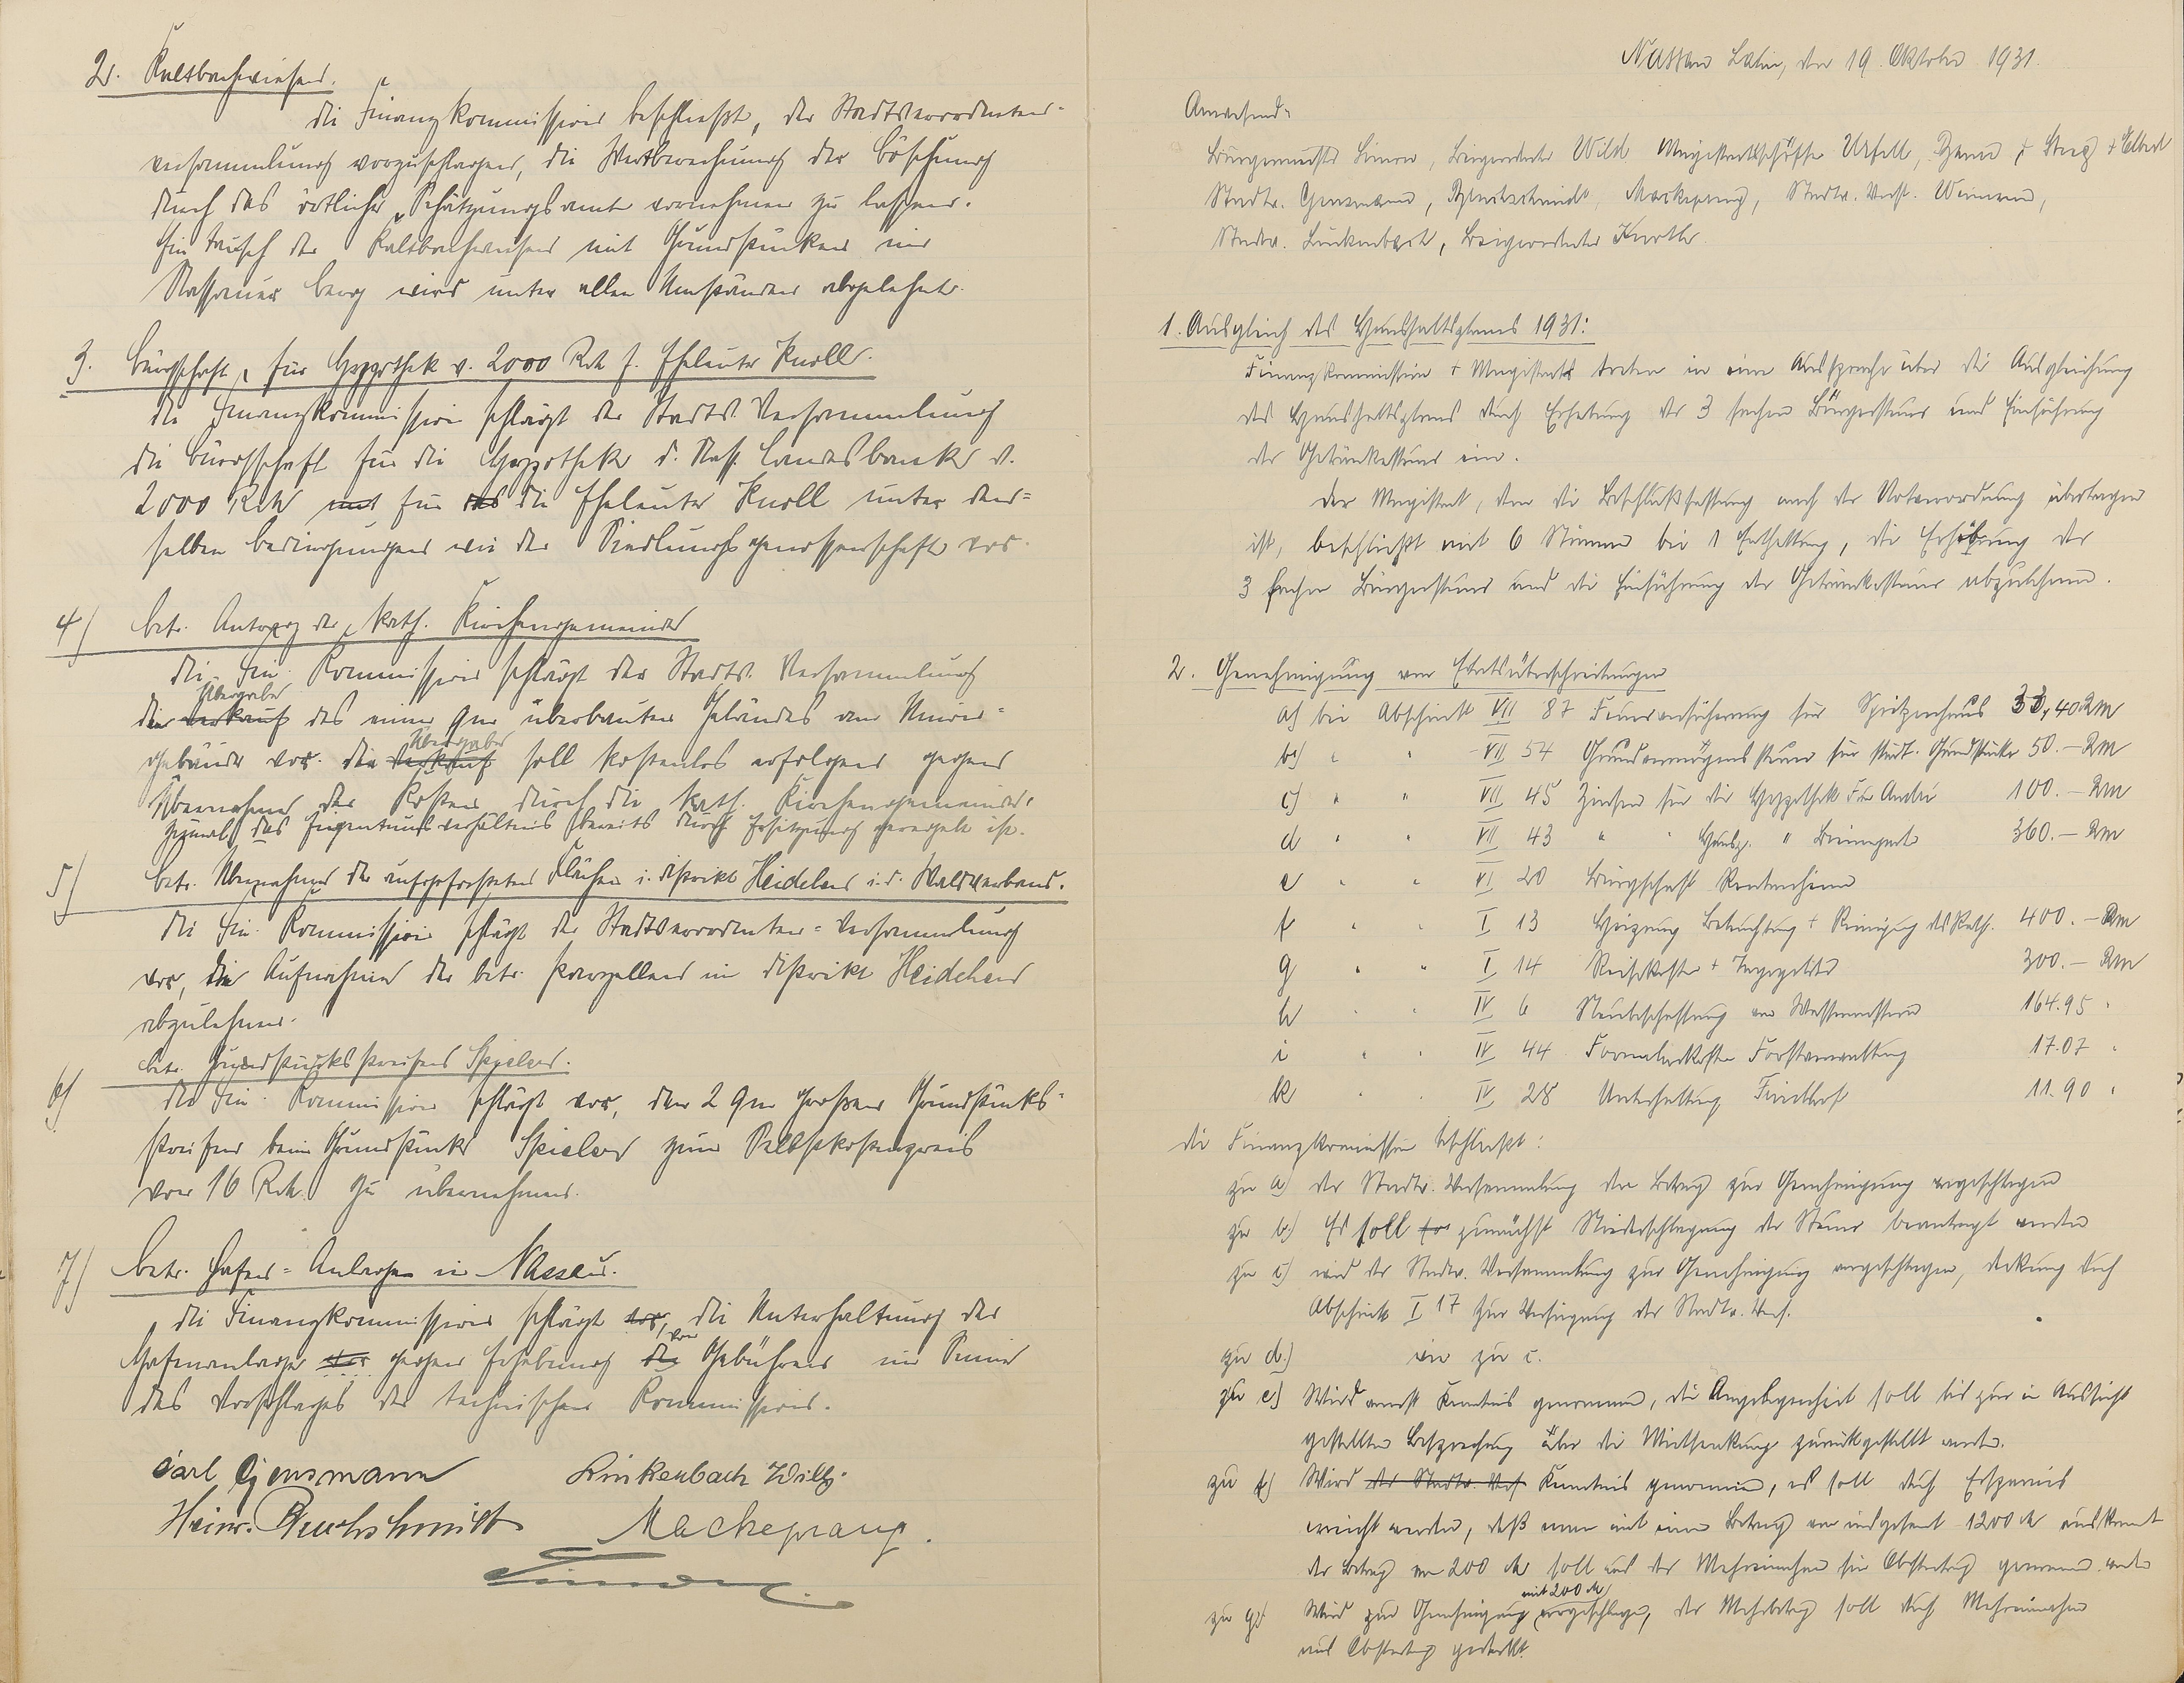 2. Kaltbachwiesen.
die Finanzkommission beschließt, der Stadtverordneten-
versammlung vorzuschlagen, die Wertberechnung der Böschung
durch das örtliche Schätzungsamt vornehmen zu lassen.
Ein Tausch der Kaltbachwiesen mit Grundstücken im
Nassauer Berg wird unter allen Umständen abgelehnt.
3. Bürgschaft für Hypothek v. 2000 RM f. Eheleute Knoll.
die Finanzkommission schlägt der Stadtv. Versammlung
die Bürgschaft für die Hypothek d. Nass. Landesbank v.
2000 RM mit für das die Eheleute Knoll unter den-
selben Bedingungen wie der Siedlungsgenossenschaft vor.
4) betr. Antrag der kath. Kirchengemeinde
die Fin. Kommission schlägt der Stadtv. Versammlung
Übergabe
die Verkauf des einen qm überbauten Geländes am
gebäude vor. die Verkauf Übergabe soll kostenlos erfolgen gegen
Übernahme der Kosten durch die kath. Kirchengemeinde,
zumal das Eigentumsverhältnis bereits durch Ersitzung geregelt ist.
5) betr. Übernahme der aufgeforsteten Flächen i. Distrikt Heidchen i. d. Waldverband.
die Fin. Kommission schlägt der Stadtverordneten-Versammlung
vor, die Aufnahme der betr. Parzellen im Distrikt Heidchen
abzulehnen.
6) betr. Grundstücksstreifen Spielers.
die Fin. Kommission schlägt vor, den 2 qm großen Grundstücks-
streifen beim Grundstück Spieler zum Selbstkostenpreis
von 16 RM. zu übernehmen.
7) betr. Hafen-Anlagen in Nassau.
die Finanzkommission schlägt vor, die Unterhaltung der
Hafenanlage vor gegen Erhebung die von Gebühren im Sinne
des Vorschlages der technischen Kommission.
Carl Gensmann Linkenbach Willy.
Heinr. Buchschmidt Mackeprang.
Nassau Lahn, den 19. Oktober 1931.
Anwesend:
Bürgermeister, Beigeordneter Wild, Magistratsschöffe Unfelt,
Stadtv. Gensmann, Mackeprang, Stadtv. Vorst.
Stadtv. Linkenbach, Beigeordneter
1. Ausgleich des Haushaltsplans 1931:
Finanzkommission + Magistrat treten in eine Aussprache über die Ausgleichung
des Haushaltsplans durch Erhebung der 3 fachen Bürgersteuer und Einführung
der Getränkesteuer ein.
Der Magistrat, dem die Beschlußfassung nach der Notverordnung übertragen
ist, beschließt mit 6 Stimmen bei 1 Enthaltung, die Erhebung der
3 fachen Bürgersteuer und die Einführung der Getränkesteuer abzulehnen.
2. Genehmigung von Etatsüberschreitungen
a) bei Abschnitt VII 87 Feuerversicherung für Spritzenhaus 33,40 RM
b) " " VII 54 Grundvermögenssteuer für städt. Grundstücke 50.— RM
c) " " VII 45 Zinsen für die Hypothek 100.— RM
d " " VII 43 " " 360.— RM
e " " VI 20 Bürgschaft
f " " I 13 Heizung Beleuchtung + Reinigung des Rath. 400.— RM
g " " I 14 Reisekosten + Tagegelder 300.— RM
h " " IV 6 Neubeschaffung von Wassermessern 164.95 "
i " " IV 44 Formularkosten Forstverwaltung 17.07 "
k " " IV 28 Unterhaltung Friedhof 11.90 "
die Finanzkommission beschließt:
zu a) der Stadtv. Versammlung den Betrag zur Genehmigung vorgeschlagen
zu b) Es soll zunächst Niederschlagung der Steuer beantragt werden
zu c) wird der Stadtv. Versammlung zur Genehmigung vorgeschlagen, Deckung durch
Abschnitt I 17 zur Verfügung der Stadtv. Vers.
zu d) wie zu c.
zu e) Wird Kenntnis genommen, die Angelegenheit soll bis zur in Aussicht
gestellten Besprechung über die Mietsenkung zurückgestellt werden.
zu f) Wird der Stadtv. Vers. Kenntnis genommen, es soll durch Ersparnis
erreicht werden, daß man mit einem Betrag von insgesamt 1200 M auskommt
der Betrag von 200 M soll aus der Mehreinnahme für Obstertrag genommen werden
zu g) Wird zur Genehmigung mit 200 M vorgeschlagen, der Mehrbetrag soll durch Mehreinnahmen
aus Obstertrag gedeckt.